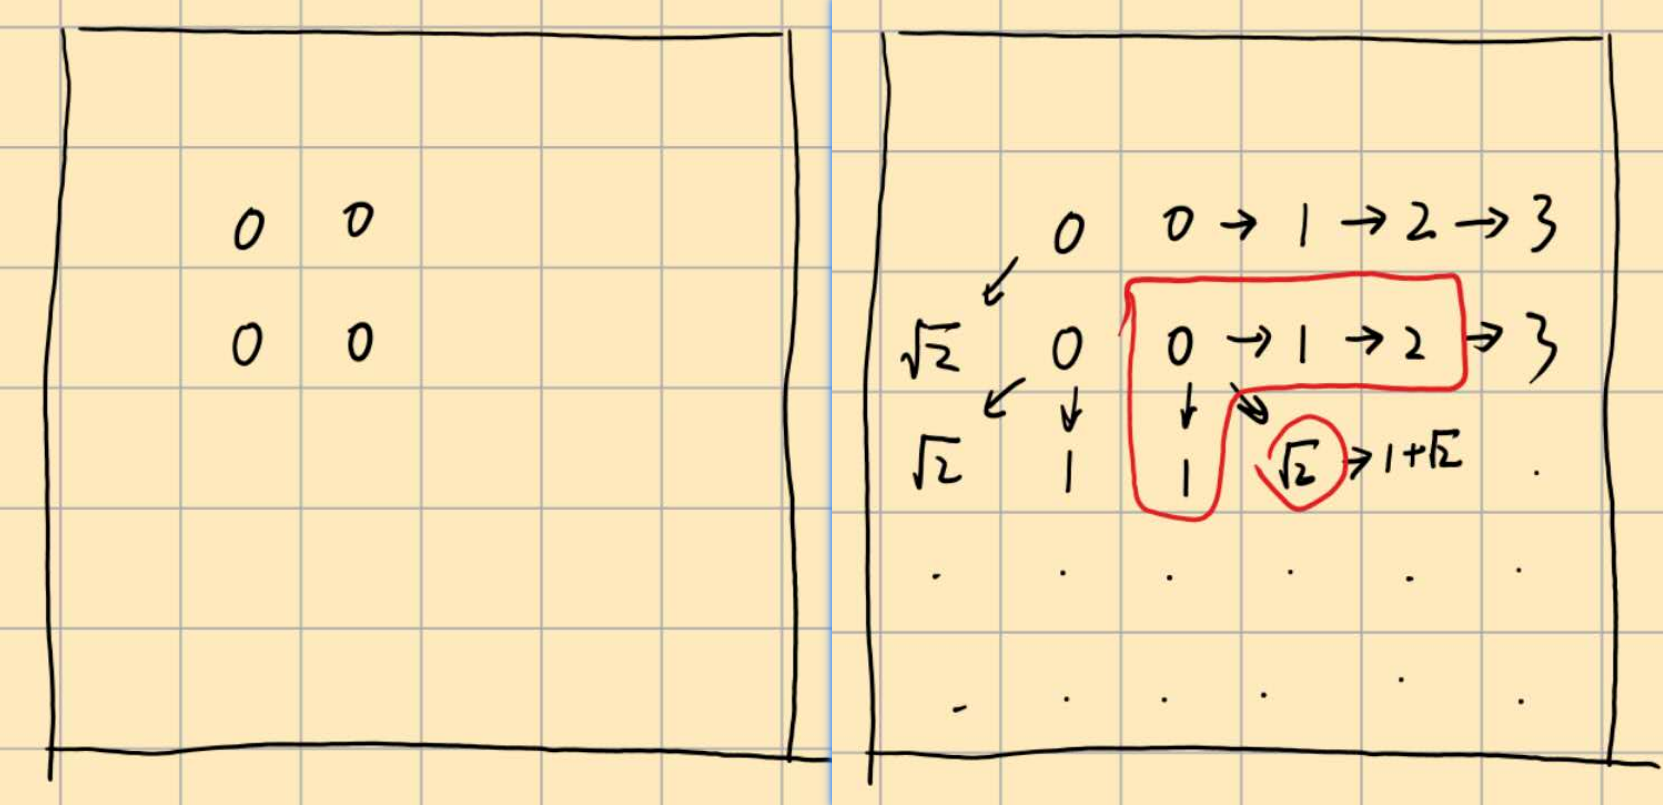 0 0
0 0
0 0 → 1 → 2 → 3
√2 0 0 → 1 → 2 → 3
√2 1 1 √2 → 1+√2 .
. . . . . .
. . . . . .